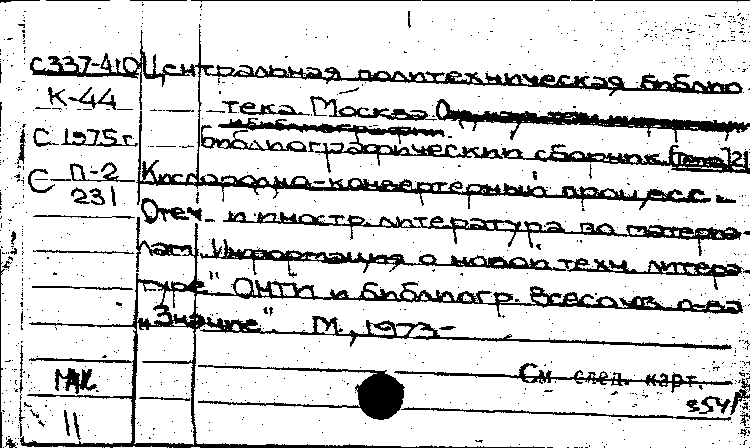 С337-410 Центральная политехническая библио
К-44 тека Москва
и библиографии.
С 1975г. библиографический сборник [Тема] 21
С П-2 Кислородно-конвертерный процесс.-
231 Отеч. и иностр. литература по матери-
лам „Информация о новой техн. литера-
туре" ОНТИ и библиогр. Всесоюз. о-ва
„Знание". М., 1973-
См след. карт.
МК
3541
11